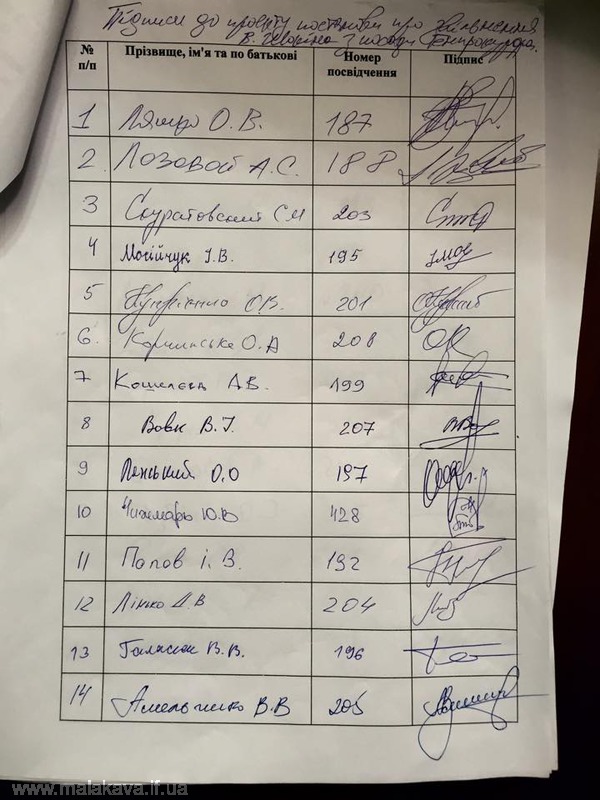 Підписи до проєкту постанови про звільнення
В. Шокіна з посади Генпрокурора.
№ п/п Прізвище, ім'я та по батькові Номер посвідчення Підпис
1 Ляшко О.В. 187
2. Лозовой А.С. 188
3 Скуратовский С М 203
4 Мосійчук І.В. 195
5 О.В. 201
6. Корчинська О.А 208
7 Кошелєва А.В. 199
8 Вовк В.І. 207
9 Ленський О.О 197
10 Чижмарь Ю.В 428
11 Попов і. В. 192
12 Лінько Д.В 204
13 Галасюк В.В. 196
14 Амельченко В.В 205
www.malakava.if.ua